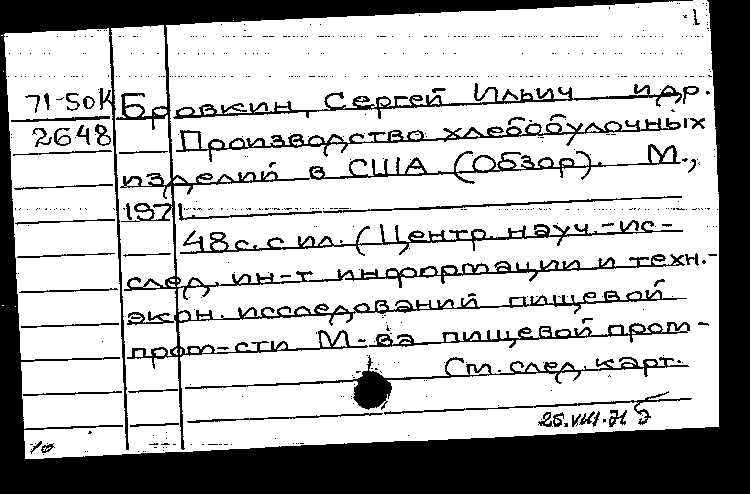 1
71-50К Бровкин, Сергей Ильич и др.
2648 Производство хлебобулочных
изделий в США. (Обзор). М.,
1971.
48 с. с ил. (Центр. науч.-ис-
след. ин-т информации и техн.-
экон. исследований пищевой
пром-сти М-ва пищевой пром-
См. след. карт.
25.VIII.71